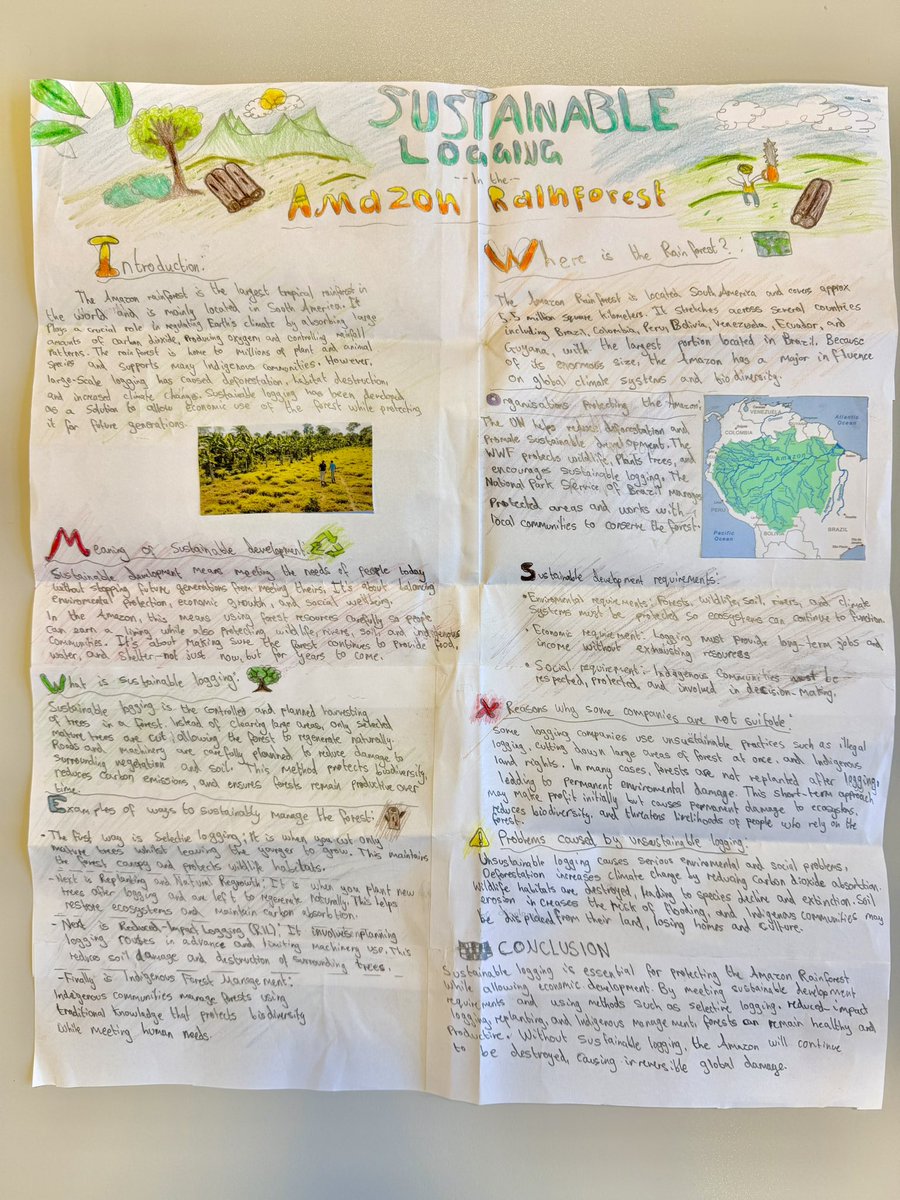 SUSTAINABLE
LOGGING
-- In the --
AMAZON RAINFOREST
Introduction:
The Amazon rainforest is the largest tropical rainforest in
the world and is mainly located in South America. It
Plays a crucial role in regulating Earth's climate by absorbing large
amounts of carbon dioxide, Producing oxygen and controlling rainfall
Patterns. The rainforest is home to millions of plant and animal
Species and supports many Indigenous communities. However,
large-Scale logging has caused deforestation, habitat destruction,
and increased climate changes. Sustainable logging has been
as a Solution to allow economic use of the forest while protecting
it for future generations.
Meaning of sustainable development:
Sustainable development means meeting the needs of people today
without stopping future generations from meeting theirs. It's about balancing
environmental protection, economic growth, and social wellbeing.
In the Amazon, this means using forest resources carefully so people
can earn a living while also protecting wildlife, rivers, soil, and indigenous
communities. It's about making sure the forest continues to provide food,
water, and shelter-not just now, but for years to come.
What is sustainable logging:
Sustainable logging is the controlled and planned harvesting
of trees in a forest. Instead of clearing large areas, only selected
mature trees are cut, allowing the forest to regenerate naturally.
Roads and machinery are carefully planned to reduce damage to
surrounding vegetation and soil. This method protects biodiversity,
reduces carbon emissions, and ensures forests remain productive over
time.
Examples of ways to sustainably manage the forest:
- The first way is selective logging: It is when you cut only
mature trees whilst leaving the yonger to grow. This maintains
the forest canopy and protects wildlife habitats.
- Next is Replanting and Natural Regrowth: It is when you plant new
trees after logging and are left to regenerate naturally. This helps
restore ecosystems and maintain carbon absorbtion.
- Next is Reduced-Impact Logging (RIL): It involves planning
logging routes in advance and limiting machinery use. This
reduces soil damage and destruction of surrounding trees.
- Finally is Indigenous Forest Management:
Indigenous communities manage forests using
traditional knowledge that protects biodiversity
while meeting human needs.
Where is the Rain forest?:
The Amazon Rainforest is located South America and covers approx
5.5 million square kilometers. It stretches across several countries
including Brazil, Colombia, Peru, Bolivia, Venezuela, Ecuador, and
Guyana, with the largest portion located in Brazil. Because
of its enormous size, the Amazon has a major influence
on global climate systems and biodiversity.
Organisations protecting the Amazon:
The UN helps reduce deforestation and
Promote Sustainable development. The
WWF protects wildlife, Plants trees, and
encourages sustainable logging. The
National Park Service of Brazil manages
Protected areas and works with
local communities to conserve the forest.
VENEZUELA
COLOMBIA
Atlantic
Ocean
Amazon
PERU
BOLIVIA
BRAZIL
Pacific
Ocean
Sustainable development requirements:
• requirements: Forests, wildlife, soil, rivers, and climate
systems must be protected so ecosystems can continue to function.
• Economic requirement: Logging must provide long-term jobs and
income without exhausting resources
• Social requirement: Indagenous Communities must be
respected, protected, and involved in decision-making.
Reasons why some companies are not suitable:
Some logging companies use unsustainable practices such as illegal
logging, cutting down large areas of forest at once, and Indigenous
land rights. In many cases, forests are not replanted after logging,
leading to permanent enviromental damage. This short-term approach
may make profit initially but causes permanent damage to ecosystems,
reduces biodiversity, and threatens livelihoods of people who rely on the
forest.
Problems caused by unsustainable logging:
Unsustainable logging causes serious enviromental and social problems.
Deforestation increases climate change by reducing carbon dioxide absorbtion.
Wildlife habitats are destroyed, leading to species decline and extinction. Soil
erosion increases the risk of flooding, and Indigenous communities may
be displaced from their land, losing homes and culture.
CONCLUSION
Sustainable logging is essential for protecting the Amazon Rainforest
while allowing economic development. By meeting sustainable development
requirements and using methods such as selective logging, reduced-impact
logging, replanting, and Indigenous management, forests can remain healthy and
productive. Without sustainable logging, the Amazon will continue
to be destroyed, causing irreversible global damage.